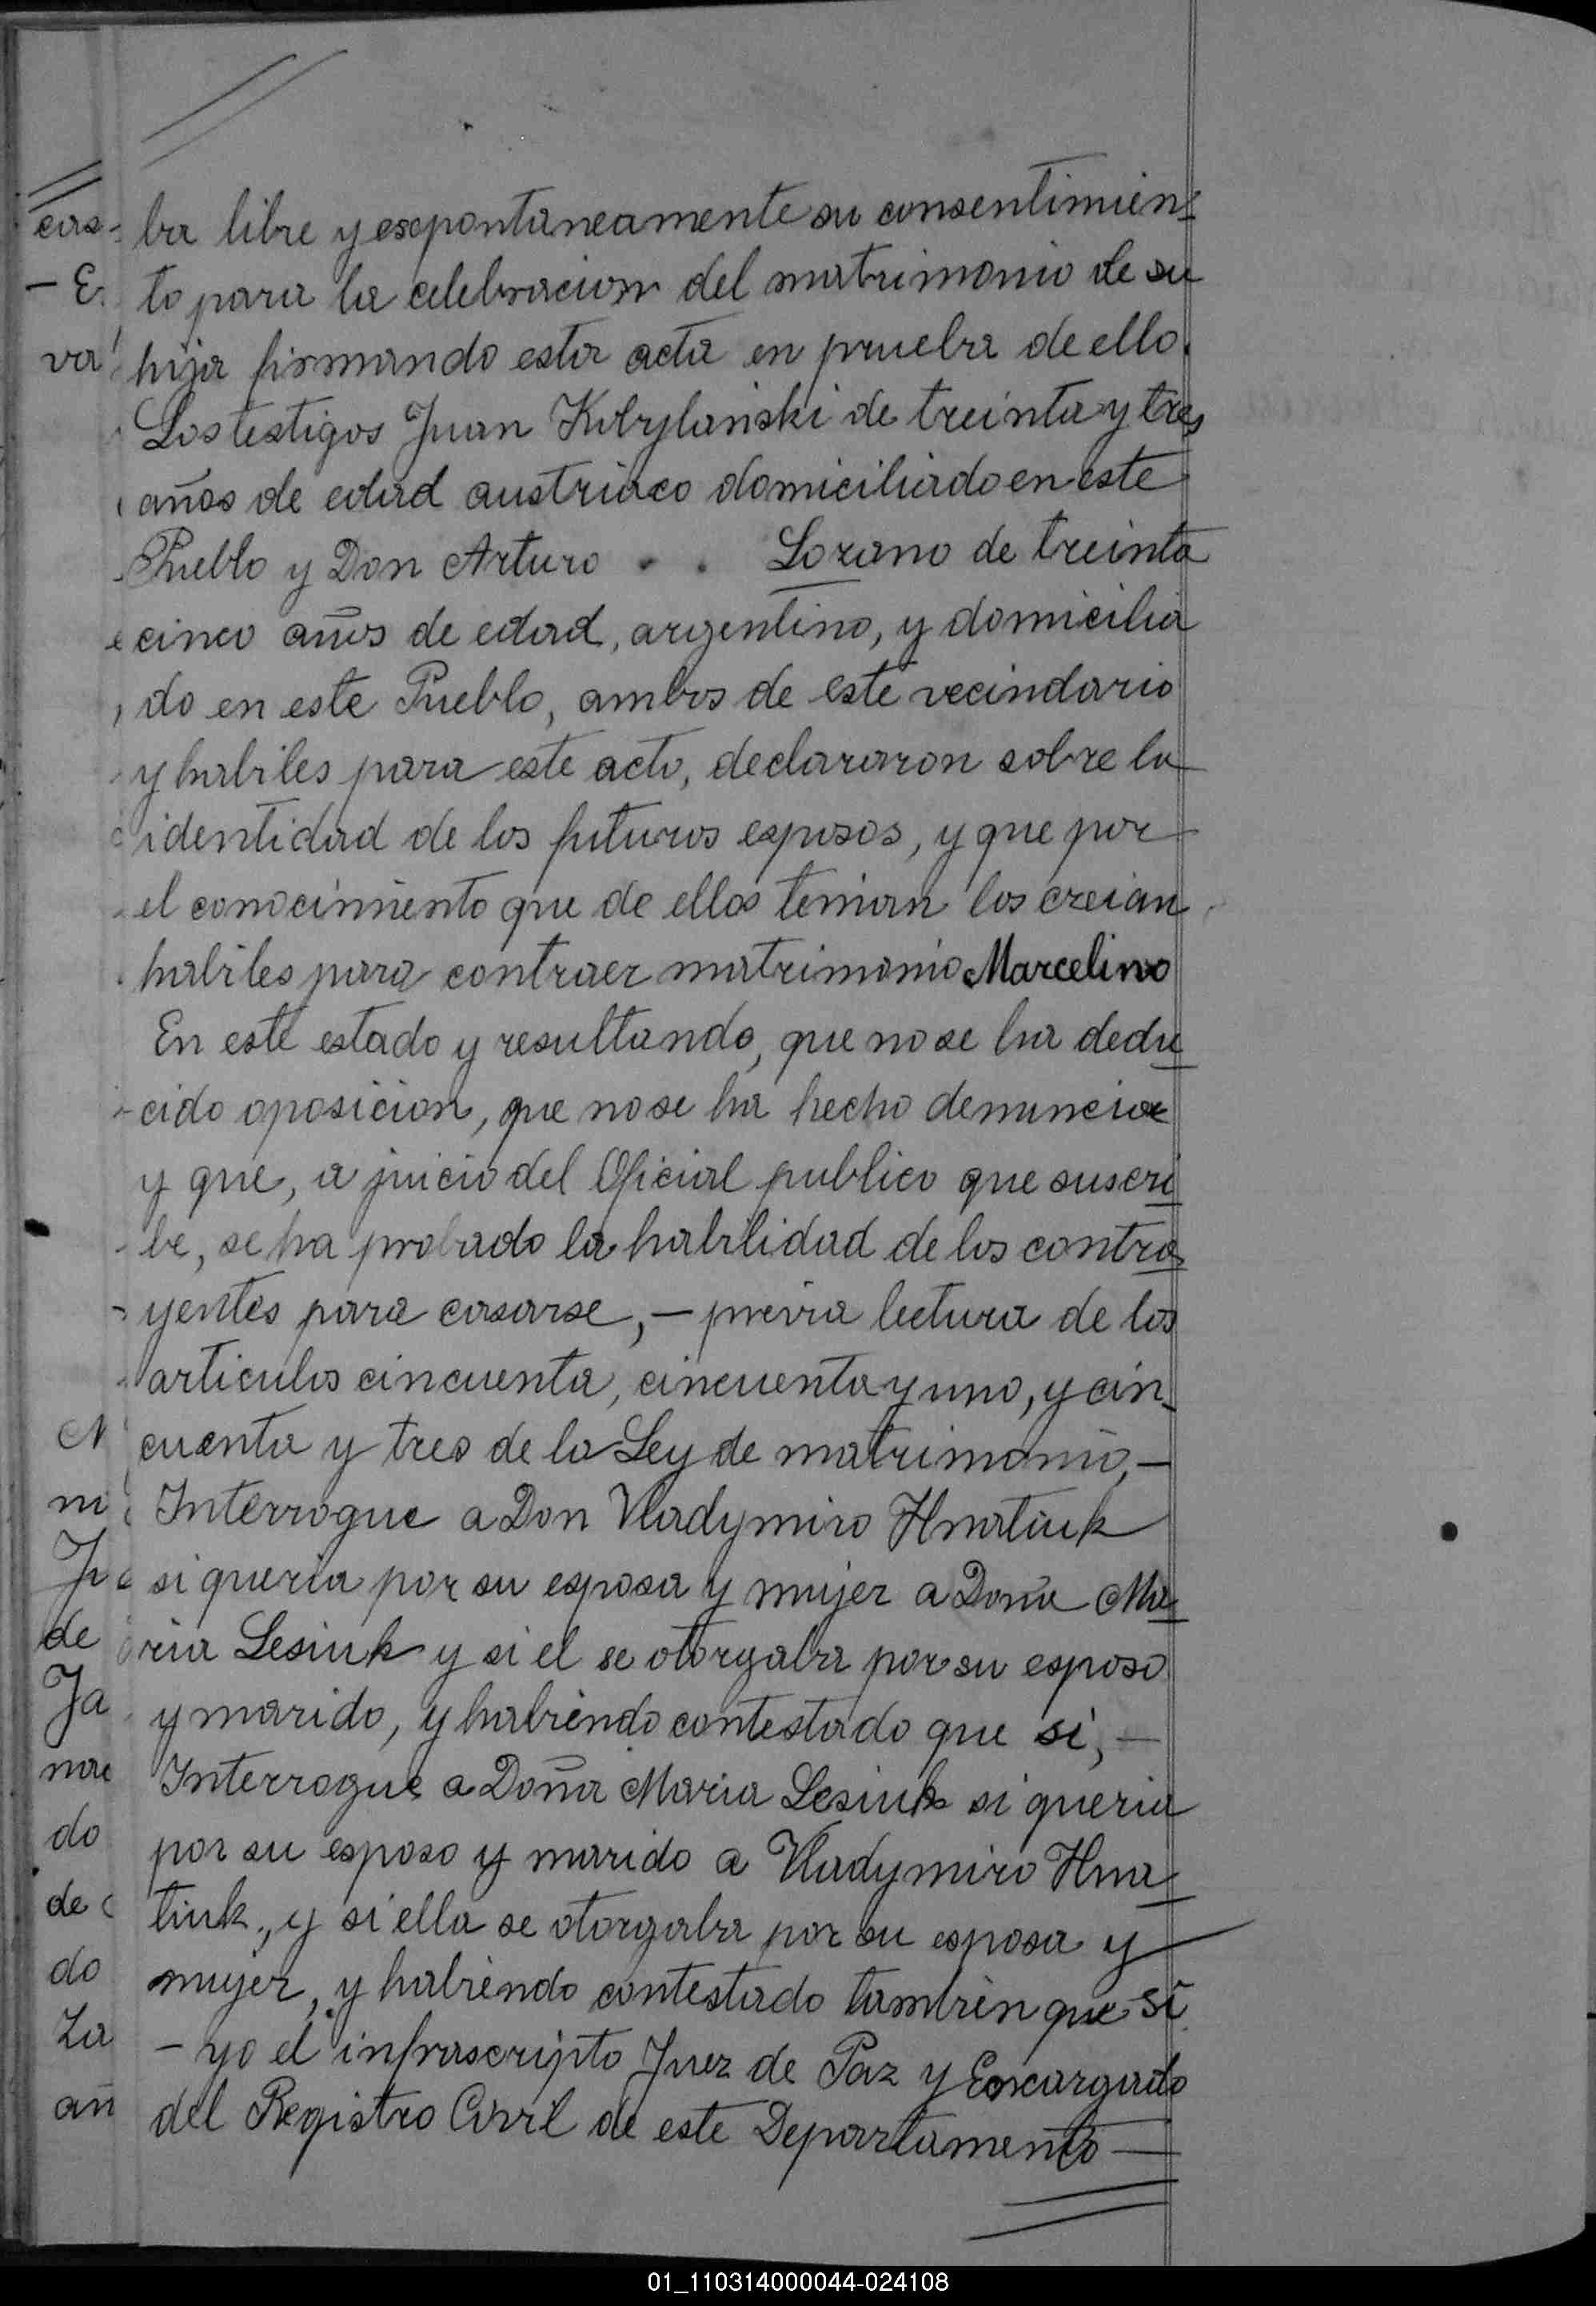 ba libre y esepontaneamente su consentimien-
to para la celebracion del matrimonio de su
hija firmando esta acta en prueba de ello.
Los testigos Juan Kobylanski de treinta y tres
años de edad austriaco domiciliado en este
Pueblo y Don Arturo . . Lozano de treinta
cinco años de edad, argentino, y domicilia
do en este Pueblo, ambos de este vecindario
y habiles para este acto, declararon sobre la
identidad de los futuros esposos, y que por
el conocimiento que de ellos tenian los creian
habiles para contraer matrimonio Marcelino
En este estado y resultando, que no se ha dedu
cido oposicion, que no se ha hecho denuncia
y que, a juicio del Oficial publico que suscri
be, se ha probado la habilidad de los contra
yentes para casarse, — previa lectura de los
articulos cincuenta, cincuenta y uno, y cin
cuenta y tres de la Ley de matrimonio, —
Interrogue a Don Vladymiro Hnatiuk
si queria por su esposa y mujer a Doña Ma
ria Lesiuk y si el se otorgaba por su esposo
y marido, y habiendo contestado que si, —
Interrogue a Doña Maria Lesiuk si queria
por su esposo y marido a Vladymiro Hna
tiuk, y si ella se otorgaba por su esposa y
mujer, y habiendo contestado tambien que si
— yo el infrascripto Juez de Paz y Encargado
del Registro Civil de este Departamento —
01_110314000044-024108